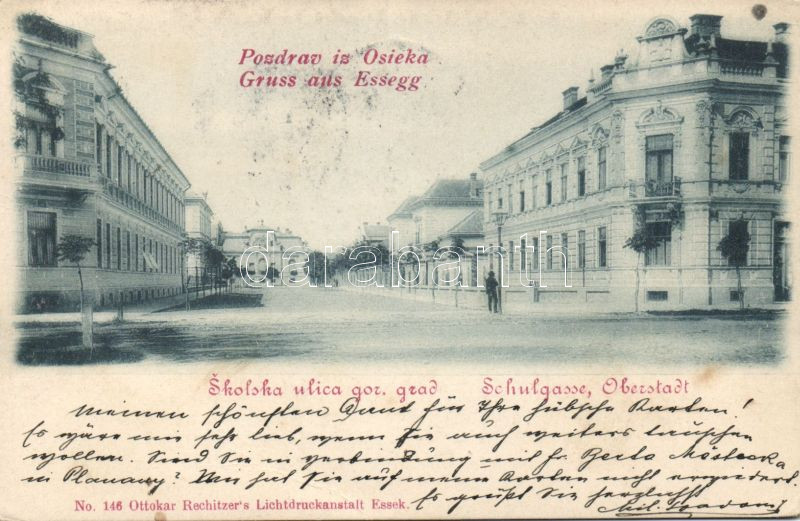 Pozdrav iz Osieka
Gruss aus Essegg
darabanth
Školska ulica gor. grad Schulgasse, Oberstadt
Meinen schönsten Dank für Ihre hübsche Karten!
Es wäre mir sehr lieb, wenn Sie auch weiters tauschen
wollen. Sind Sie in verbindung mit Fr. Berta
in Planany? Von hat Sie auf meine Karten nicht erwiedert.
Es grüßt Sie herzlichst
No. 146 Ottokar Rechitzer's Lichtdruckanstalt Essek.